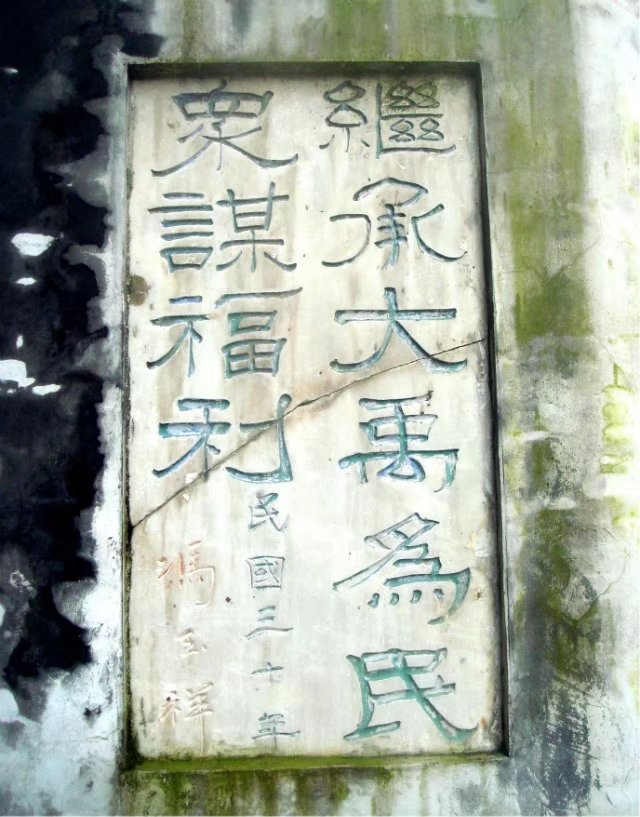 繼承大禹為民
衆謀福利
民國三十年
馮玉祥